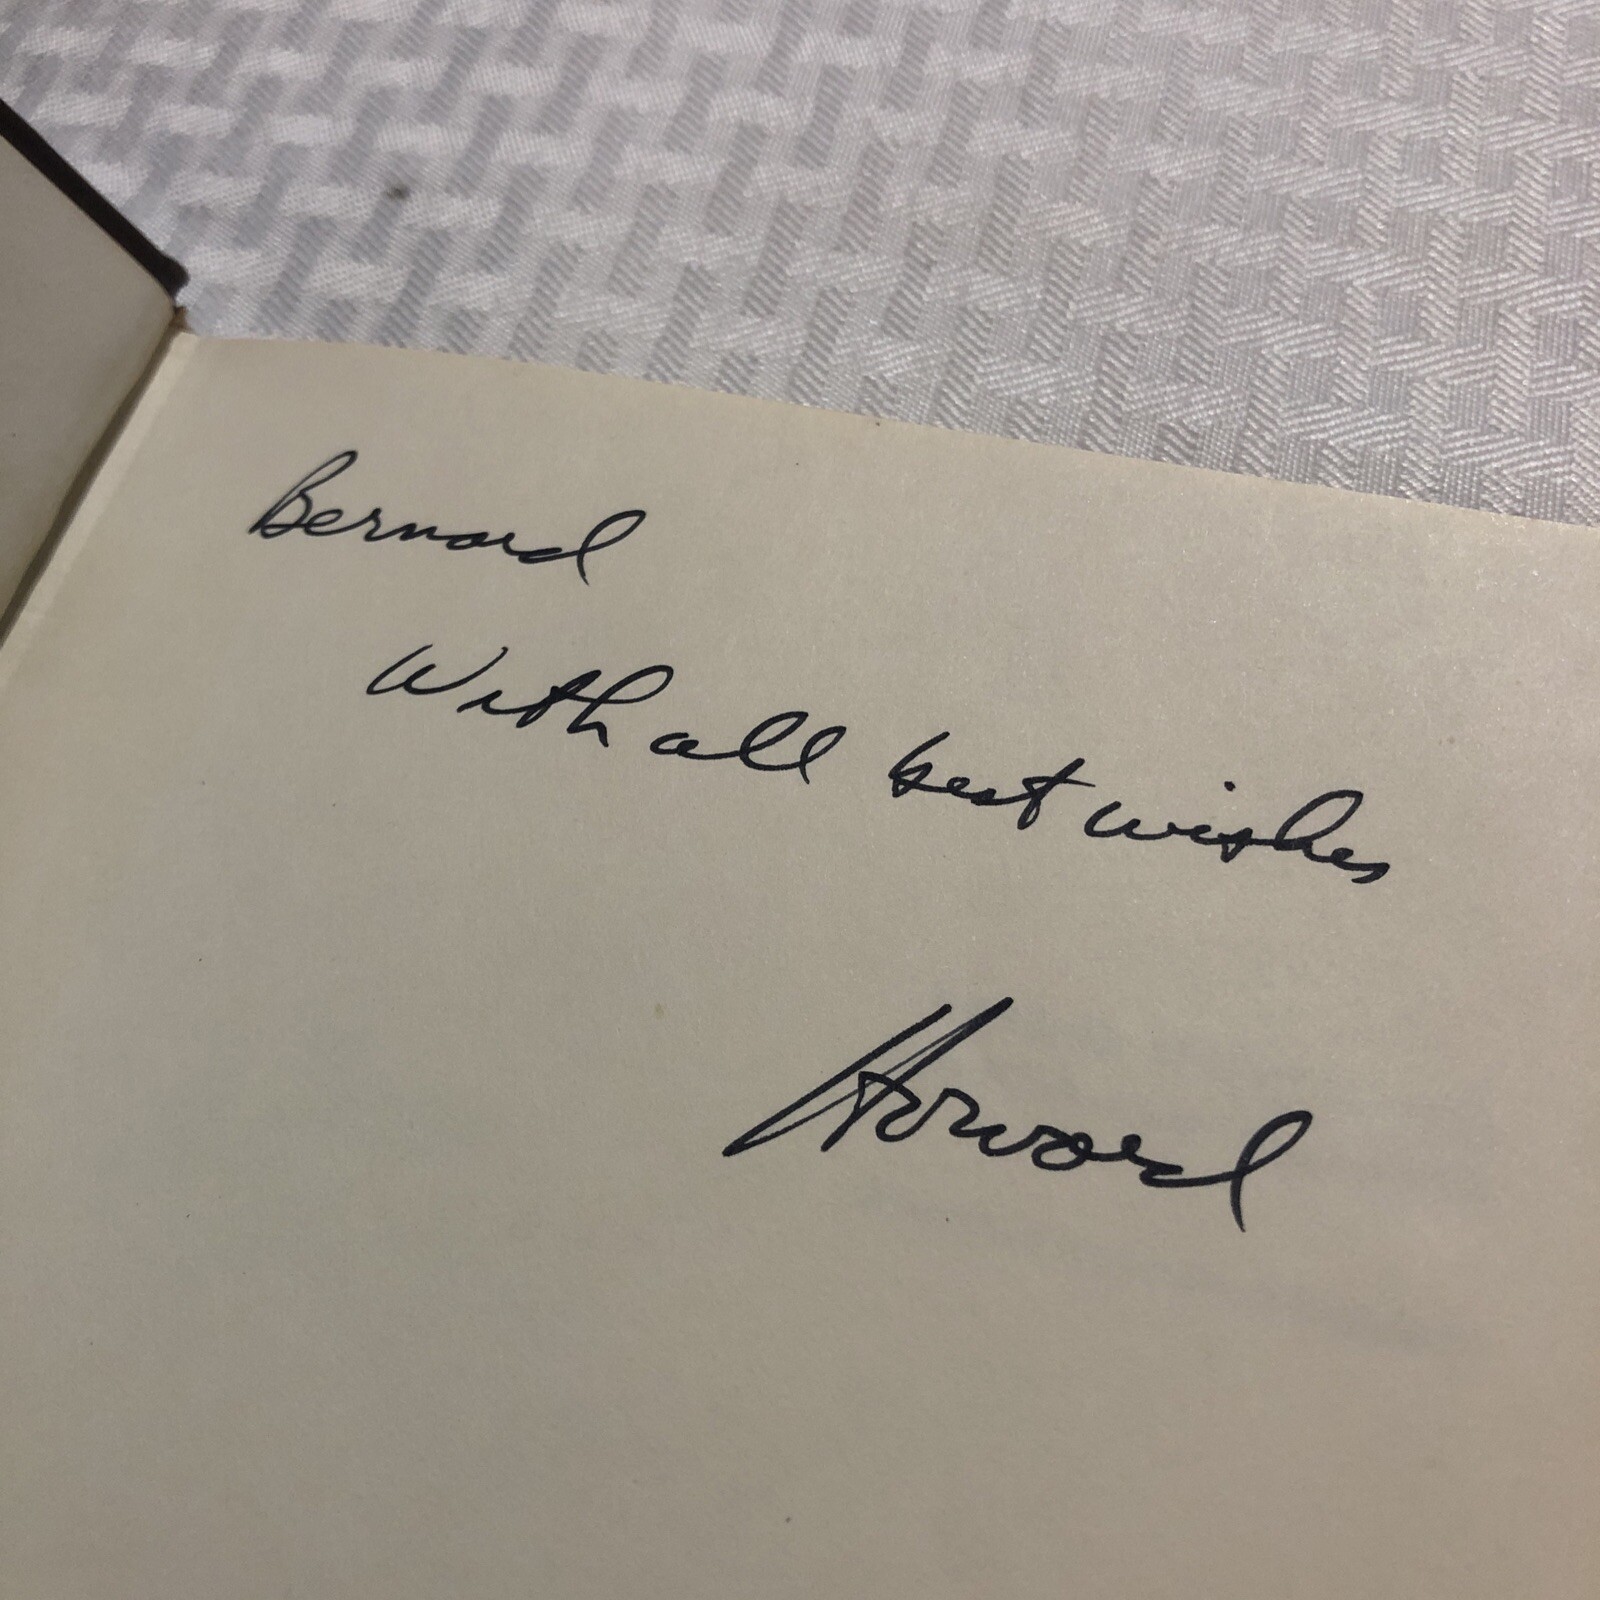 Bernard
With all best wishes
Howard